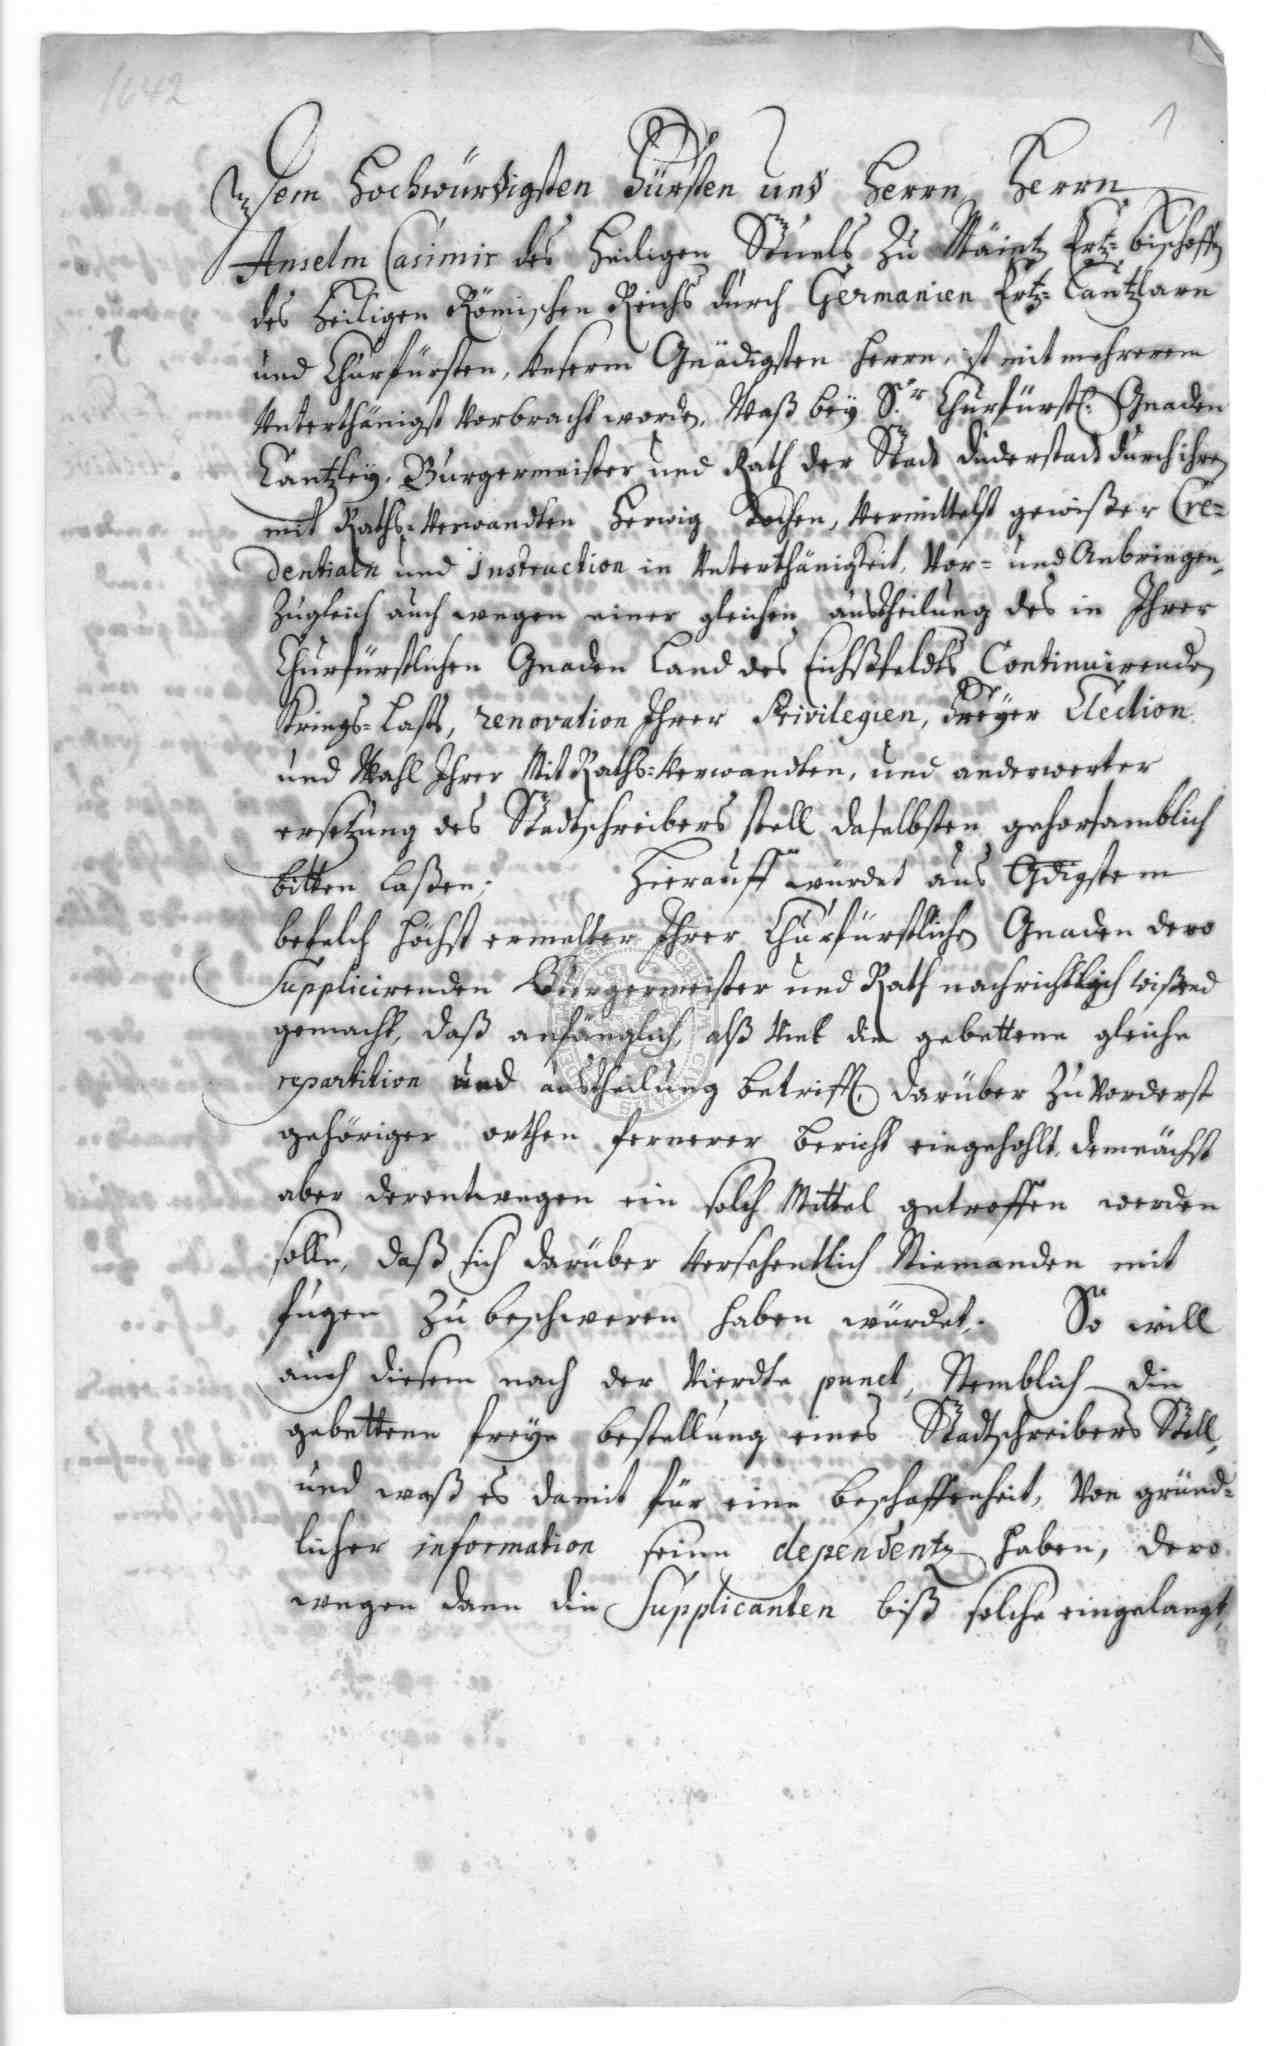 1642
1
Dem Hochwürdigsten Fürsten und Herrn, Herrn
Anselm Casimir des Heiligen Stuels zu Mäintz Ertz-bischoffen
des Heiligen Römischen Reichs durch Germanien Ertz-Cantzlarn
und Churfürsten, Unserm Gnädigsten Herrn, ist mit mehrerem
Unterthänigst vorbracht worden, Waß bey Sr. Churfürstl. Gnaden
Cantzley, Burgermeister und Rath der Stadt Duderstadt durch ihren
mit Raths-verwandten Herwig Kochen, vermittelst gewißer Cre-
dentialn und Instruction in Unterthänigkeit, Vor- und Anbringen,
zugleich auch wegen einer gleichen austheilung des in Ihrer
Churfürstlichen Gnaden Land des Eichßfeldts Continuirenden
Kriegs-Lasts, renovation Ihrer Privilegien, Freyer Election
und Wahl Ihrer Mit Raths-verwandten, und anderwerter
ersetzung des Stadtschreibers stell daselbsten gehorsamblich
bitten laßen; Hierauff würdet aus Gdigstem
befelch höchst ermelter Ihrer Churfürstlichen Gnaden dero
Supplicirenden Burgermeister und Rath nachrichtlich wißend
gemacht, daß anfänglich, alß viel die gebettene gleiche
repartition und austheilung betrifft, darüber zuvorderst
gehöriger orthen fernerer bericht eingehohlt, demnächst
aber derentwegen ein solch Mittel getroffen werden
solle, daß sich darüber versehentlich Niemanden mit
fugen zu beschweren haben würdet. So will
auch diesem nach der Vierdte punct, Nemblich die
gebettene freye bestellung eines Stadtschreibers Stell,
und waß es damit für eine beschaffenheit, von gründ-
licher information seine dependentz haben, dero
wegen dann die Supplicanten biß solche eingelangt,